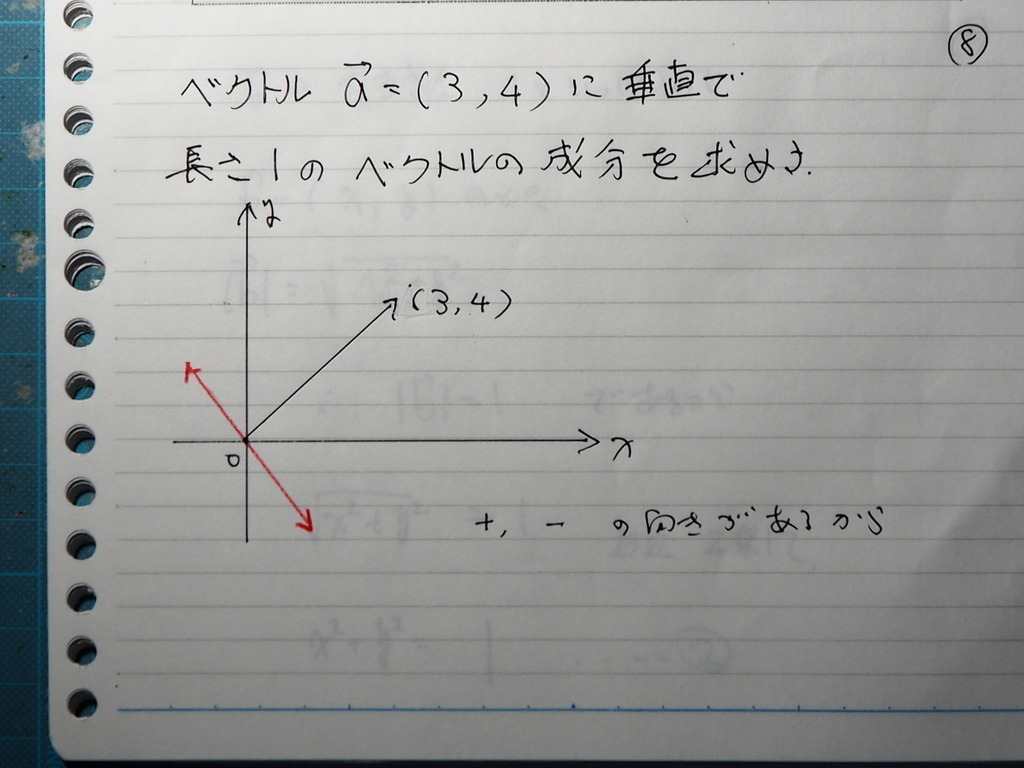 ⑧
ベクトル a⃗ = (3, 4) に 垂直で
長さ 1 の ベクトルの 成分を 求めよ.
y
(3, 4)
x
0
+, - の向きがあるから